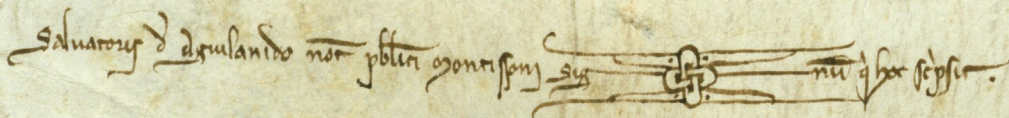 Salvatoris d' Aguilanido not' pb̅lici Montissoni Sig nu̅ q̍ hoc sc̍psit.